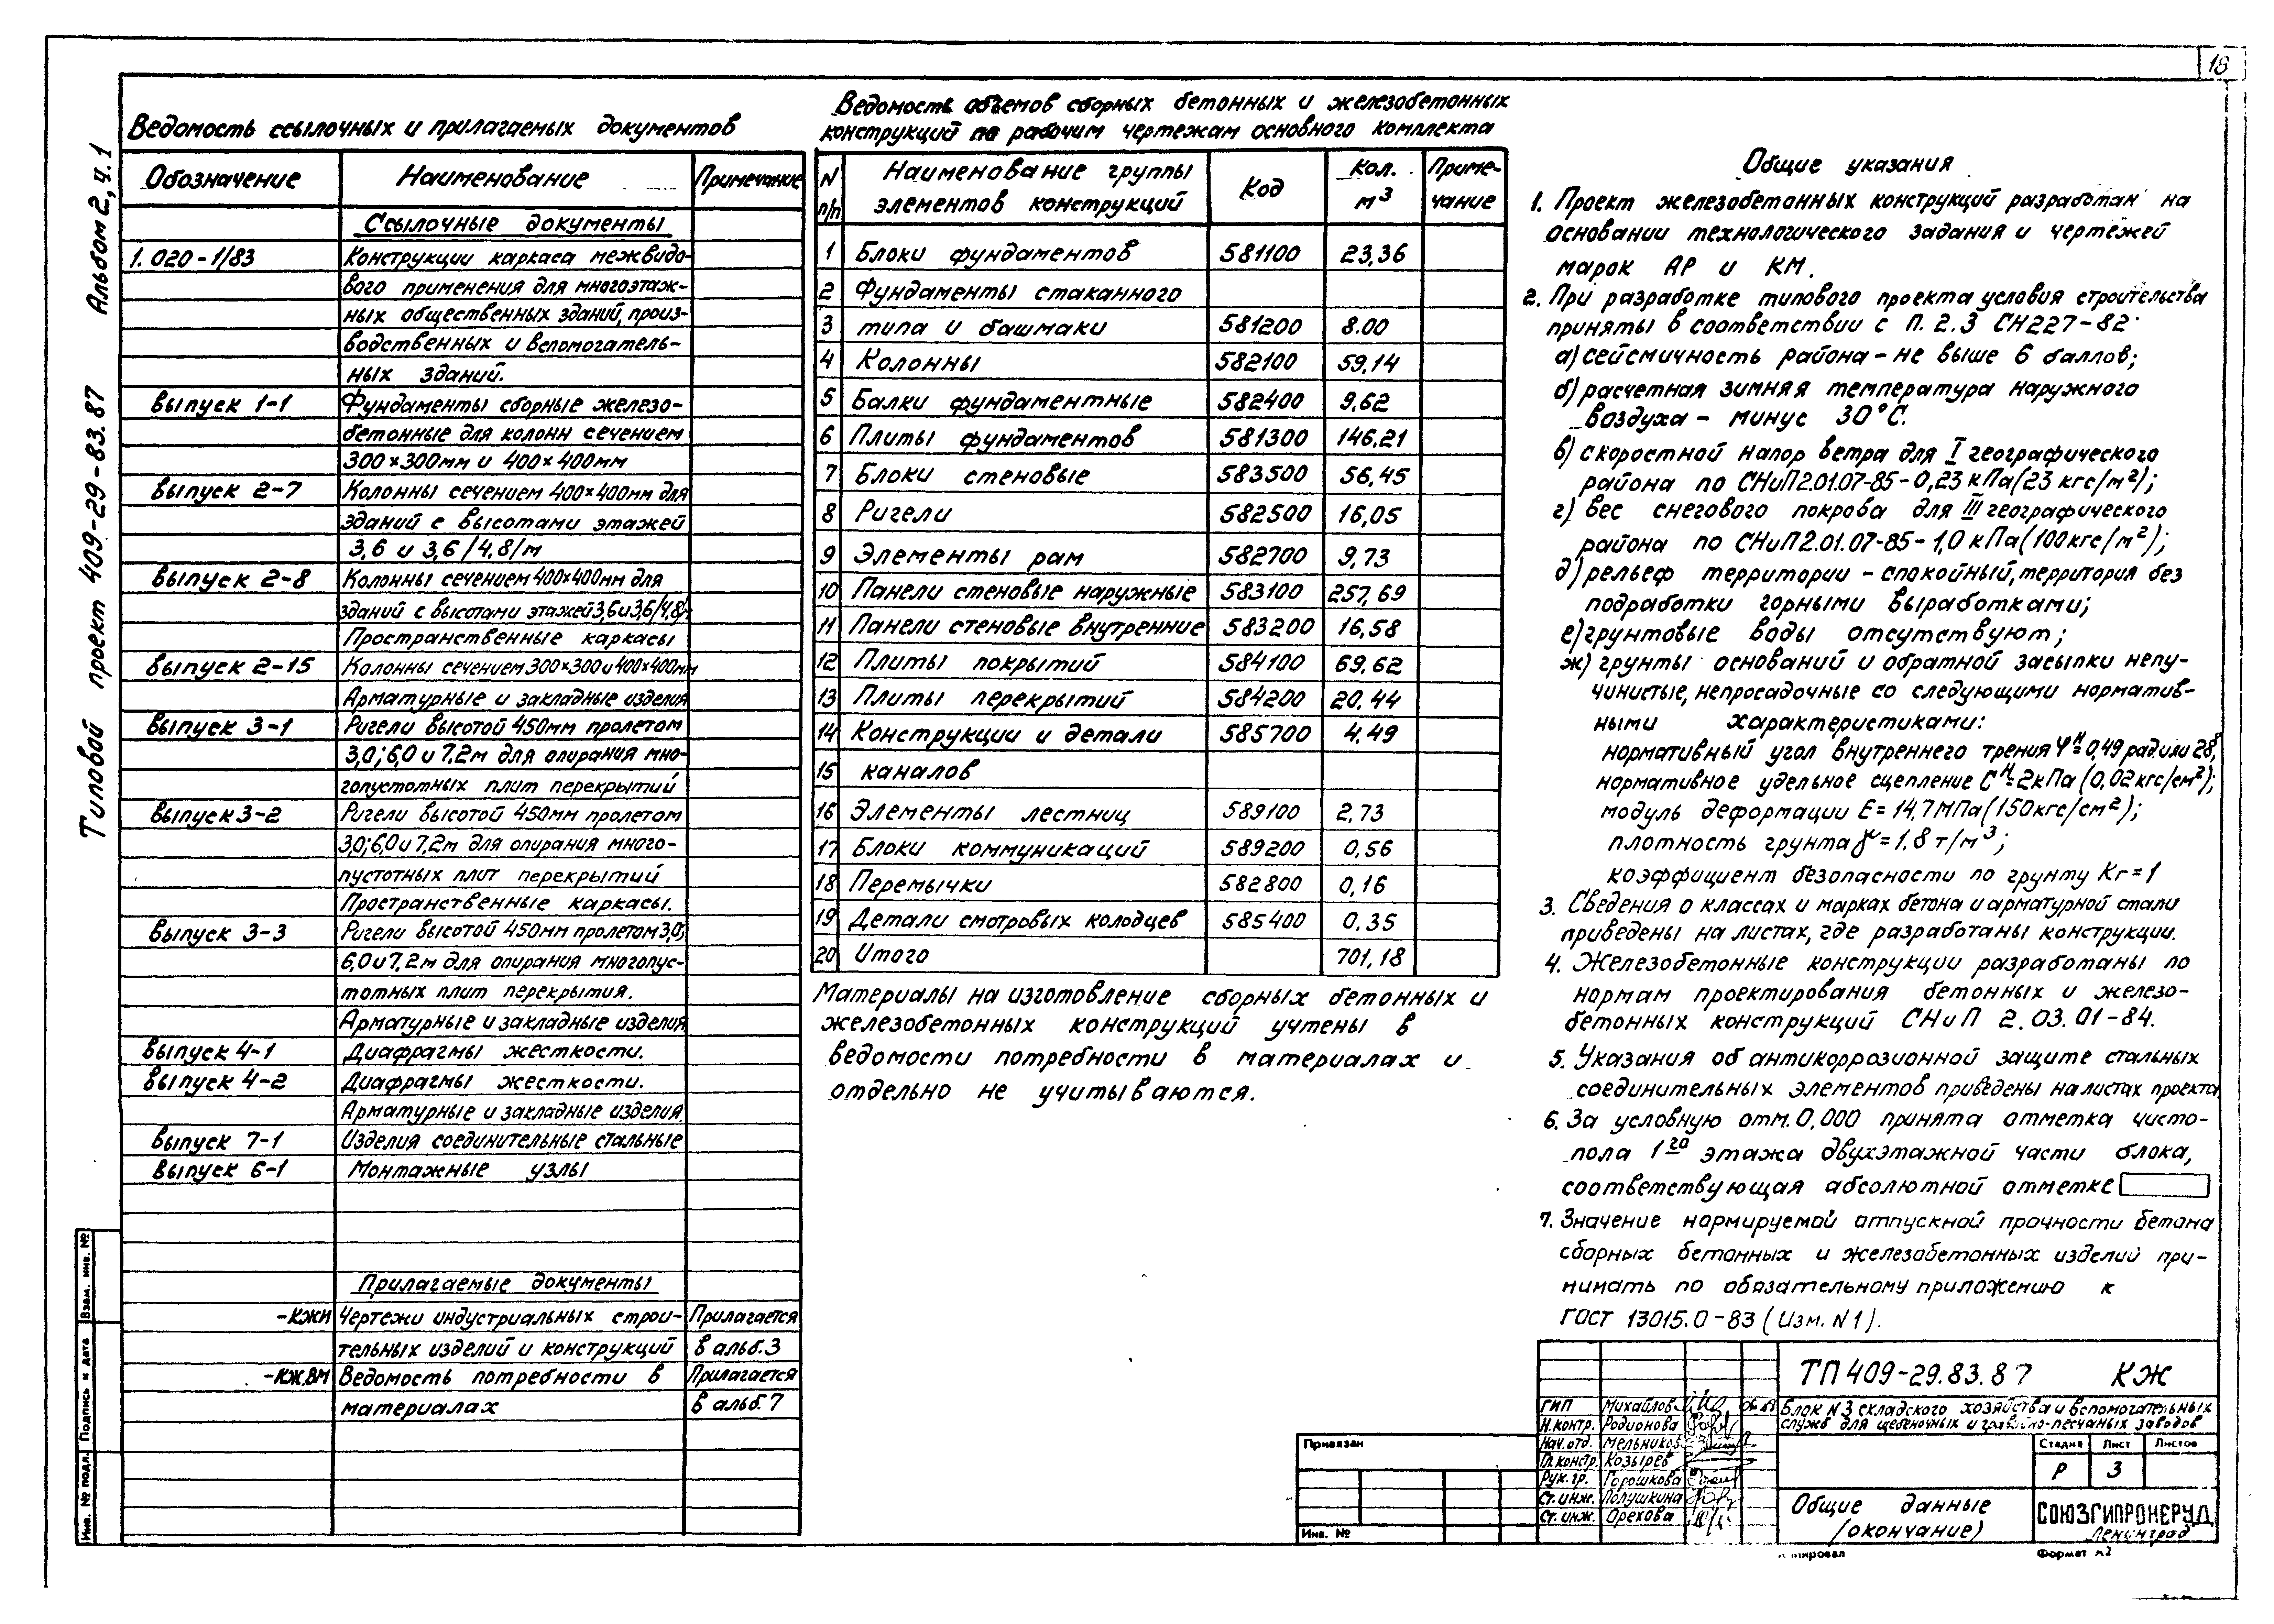 18
Типовой проект 409-29-83.87 Альбом 2, ч.1
Ведомость ссылочных и прилагаемых документов
Обозначение Наименование Примечание
Ссылочные документы
1.020-1/83 Конструкции каркаса межвидо-
вого применения для многоэтаж-
ных общественных зданий, произ-
водственных и вспомогатель-
ных зданий.
выпуск 1-1 Фундаменты сборные железо-
бетонные для колонн сечением
300×300мм и 400×400мм
выпуск 2-7 Колонны сечением 400×400мм для
зданий с высотами этажей
3,6 и 3,6/4,8/м
выпуск 2-8 Колонны сечением 400×400мм для
зданий с высотами этажей 3,6и3,6/4,8/м
Пространственные каркасы
выпуск 2-15 Колонны сечением 300×300 и 400×400мм
Арматурные и закладные изделия
выпуск 3-1 Ригели высотой 450мм пролетом
3,0; 6,0 и 7,2м для опирания мно-
гопустотных плит перекрытий
выпуск 3-2 Ригели высотой 450мм пролетом
3,0; 6,0 и 7,2м для опирания много-
пустотных плит перекрытий
Пространственные каркасы.
выпуск 3-3 Ригели высотой 450мм пролетом 3,0;
6,0 и 7,2м для опирания многопус-
тотных плит перекрытия.
Арматурные и закладные изделия
выпуск 4-1 Диафрагмы жесткости.
выпуск 4-2 Диафрагмы жесткости.
Арматурные и закладные изделия.
выпуск 7-1 Изделия соединительные стальные
выпуск 6-1 Монтажные узлы
Прилагаемые документы
-КЖИ Чертежи индустриальных строи- Прилагается
тельных изделий и конструкций в альб.3
-КЖ.ВМ Ведомость потребности в Прилагается
материалах в альб.7
Ведомость объемов сборных бетонных и железобетонных
конструкций по рабочим чертежам основного комплекта
N п/п Наименование группы элементов конструкций Код Кол. м³ Приме-чание
1 Блоки фундаментов 581100 23,36
2 Фундаменты стаканного
3 типа и башмаки 581200 8.00
4 Колонны 582100 59,14
5 Балки фундаментные 582400 9,62
6 Плиты фундаментов 581300 146,21
7 Блоки стеновые 583500 56,45
8 Ригели 582500 16,05
9 Элементы рам 582700 9,73
10 Панели стеновые наружные 583100 257,69
11 Панели стеновые внутренние 583200 16,58
12 Плиты покрытий 584100 69,62
13 Плиты перекрытий 584200 20,44
14 Конструкции и детали 585700 4,49
15 каналов
16 Элементы лестниц 589100 2,73
17 Блоки коммуникаций 589200 0,56
18 Перемычки 582800 0,16
19 Детали смотровых колодцев 585400 0.35
20 Итого 701,18
Материалы на изготовление сборных бетонных и
железобетонных конструкций учтены в
ведомости потребности в материалах и
отдельно не учитываются.
Общие указания
1. Проект железобетонных конструкций разработан на
основании технологического задания и чертежей
марок АР и КМ.
2. При разработке типового проекта условия строительства
приняты в соответствии с п. 2.3 СН227-82:
а) сейсмичность района – не выше 6 баллов;
б) расчетная зимняя температура наружного
воздуха – минус 30°С.
в) скоростной напор ветра для I географического
района по СНиП2.01.07-85-0,23 кПа(23 кгс/м²);
г) вес снегового покрова для III географического
района по СНиП2.01.07-85-1,0 кПа(100кгс/м²);
д) рельеф территории – спокойный, территория без
подработки горными выработками;
е) грунтовые воды отсутствуют;
ж) грунты оснований и обратной засыпки непу-
чинистые, непросадочные со следующими норматив-
ными характеристиками:
нормативный угол внутреннего трения φᴴ=0,49 рад или 28°,
нормативное удельное сцепление Сᴴ=2кПа (0,02кгс/см²);
модуль деформации Е=14,7МПа(150кгс/см²);
плотность грунта γ=1,8 т/м³;
коэффициент безопасности по грунту Кг=1
3. Сведения о классах и марках бетона и арматурной стали
приведены на листах, где разработаны конструкции.
4. Железобетонные конструкции разработаны по
нормам проектирования бетонных и железо-
бетонных конструкций СНиП 2.03.01-84.
5. Указания об антикоррозионной защите стальных
соединительных элементов приведены на листах проекта
6. За условную отм. 0,000 принята отметка чисто-
пола 1го этажа двухэтажной части блока,
соответствующая абсолютной отметке
7. Значение нормируемой отпускной прочности бетона
сборных бетонных и железобетонных изделий при-
нимать по обязательному приложению к
ГОСТ 13015.0-83 (Изм. N1).
ТП 409-29.83.87 КЖ
ГИП Михайлов
Н.контр. Родионова
Нач.отд. Мельников
Гл.констр. Козырев
Рук.гр. Горошкова
Ст.инж. Полушкина
Ст.инж. Орехова
Блок N3 складского хозяйства и вспомогательных
служб для щебеночных и гравийно-песчаных заводов
Стадия Лист Листов
Р 3
Общие данные
(окончание)
СОЮЗГИПРОНЕРУД
Ленинград
Привязан
Инв. №
Формат А2
Инв. № подл. Подпись и дата Взам. инв. №